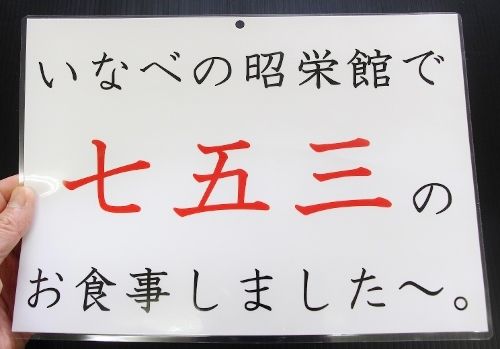 いなべの昭栄館で
七五三の
お食事しました〜。